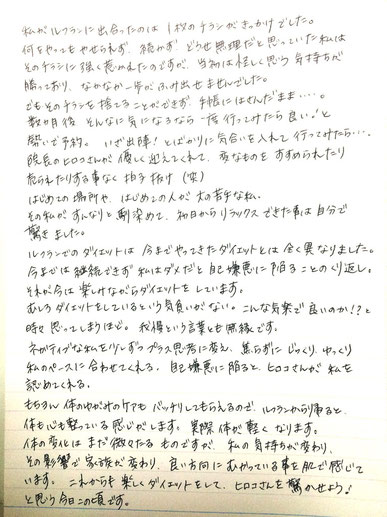 私がルフランに出合ったのは 1枚のチラシがきっかけでした。
何をやってもやせられず、続かず、どうせ無理だと思っていた私は
そのチラシに強く惹かれたのですが、当初は怪しく思う気持ちが
勝っており、なかなか一歩がふみ出せませんでした。
でもそのチラシを捨てることができず、手帳にはさんだまま…。
数か月後、そんなに気になるなら一度行ってみたら良い!と
勢いで予約。いざ出陣!とばかりに気合いを入れて行ってみたら…、
院長のヒロコさんが優しく迎えてくれて、変なものをすすめられたり
売られたりする事なく拍子抜け(笑)
はじめての場所や、はじめての人が大の苦手な私。
その私がすんなりと馴染めて、初日からリラックスできた事は自分で
驚きました。
ルフランでのダイエットは今までやってきたダイエットとは全く異なりました。
今までは継続できず私はダメだと自己嫌悪に陥ることのくり返し。
それが今は楽しみながらダイエットをしています。
むしろダイエットをしているという気負いがない。こんな気楽で良いのか!?と
時々思ってしまうほど。我慢という言葉も無縁です。
ネガティブな私を少しずつプラス思考に変え、焦らずにじっくり、ゆっくり
私のペースに合わせてくれる。自己嫌悪に陥ると、ヒロコさんが私を
認めてくれる。
もちろん体のゆがみのケアもバッチリしてもらえるので、ルフランから帰ると、
体も心も整っている感じがします。実際体が軽くなります。
体の変化はまだ微々たるものですが、私の気持ちが変わり、
その影響で家族が変わり、良い方向にむかっている事を肌で感じて
います。これからも楽しくダイエットをして、ヒロコさんを驚かせよう!
と思う今日この頃です。